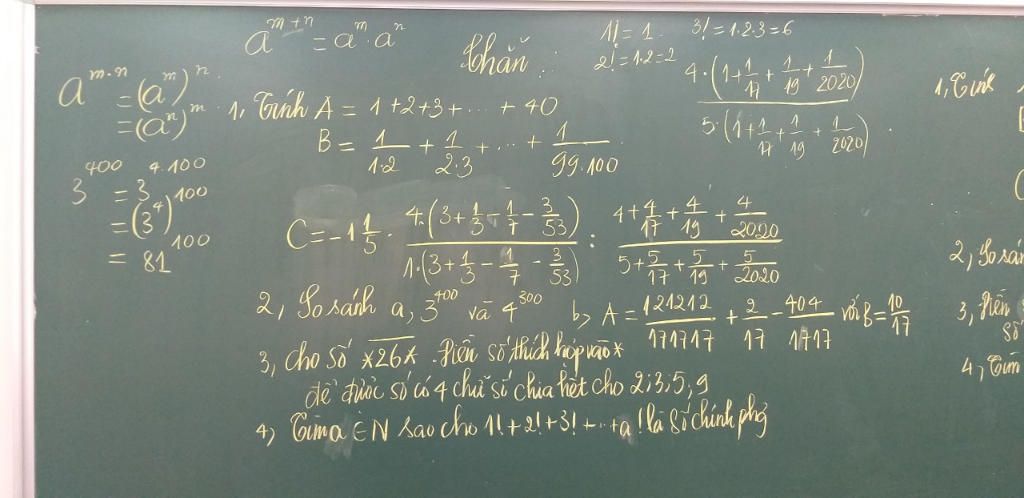 a^{m+n} = a^m . a^n
1! = 1
3! = 1.2.3 = 6
2! = 1.2 = 2
Chẵn :
a^{m.n} = (a^m)^n
= (a^n)^m
3^{400} = 3^{4.100}
= (3^4)^{100}
= 81^{100}
4.(1+1/17+1/19+1/2020)
5.(1+1/17+1/19+1/2020)
1, Tính A = 1+2+3+...+40
B = 1/1.2 + 1/2.3 + ... + 1/99.100
C = -1 1/5 . 4.(3+1/3-1/7-3/53) / 1.(3+1/3-1/7-3/53) : (4+4/17+4/19+4/2020) / (5+5/17+5/19+5/2020)
2, So sánh a, 3^{400} và 4^{300} b, A = 121212/171717 + 2/17 - 404/1717 với B = 10/17
3, Cho số *26*. Điền số thích hợp vào *
để được số có 4 chữ số chia hết cho 2;3;5;9
4, Tìm a ∈ N sao cho 1!+2!+3!+...+a! là số chính phg
1, Tính
2, So sán
3, Điền
số
4, Tìm